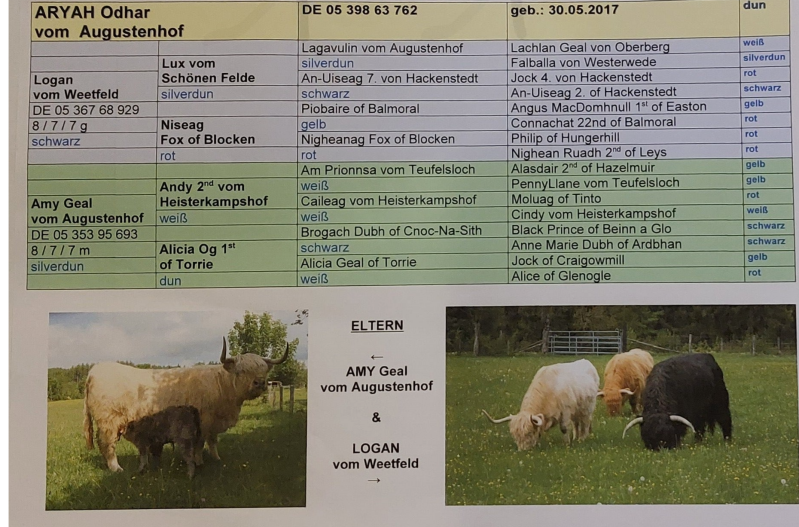 ARYAH Odhar DE 05 398 63 762 geb.: 30.05.2017 dun
vom Augustenhof
Lagavulin vom Augustenhof Lachlan Geal von Oberberg weiß
Lux vom silverdun Falballa von Westerwede silverdun
Logan Schönen Felde An-Uiseag 7. von Hackenstedt Jock 4. von Hackenstedt rot
vom Weetfeld silverdun schwarz An-Uiseag 2. of Hackenstedt schwarz
DE 05 367 68 929 Piobaire of Balmoral Angus MacDomhnull 1st of Easton gelb
8 / 7 / 7 g Niseag gelb Connachat 22nd of Balmoral rot
schwarz Fox of Blocken Nigheanag Fox of Blocken Philip of Hungerhill rot
rot rot Nighean Ruadh 2nd of Leys rot
Am Prionnsa vom Teufelsloch Alasdair 2nd of Hazelmuir gelb
Andy 2nd vom weiß PennyLlane vom Teufelsloch gelb
Amy Geal Heisterkampshof Caileag vom Heisterkampshof Moluag of Tinto rot
vom Augustenhof weiß weiß Cindy vom Heisterkampshof weiß
DE 05 353 95 693 Brogach Dubh of Cnoc-Na-Sith Black Prince of Beinn a Glo schwarz
8 / 7 / 7 m Alicia Og 1st schwarz Anne Marie Dubh of Ardbhan schwarz
silverdun of Torrie Alicia Geal of Torrie Jock of Craigowmill gelb
dun weiß Alice of Glenogle rot
ELTERN
←
AMY Geal
vom Augustenhof
&
LOGAN
vom Weetfeld
→